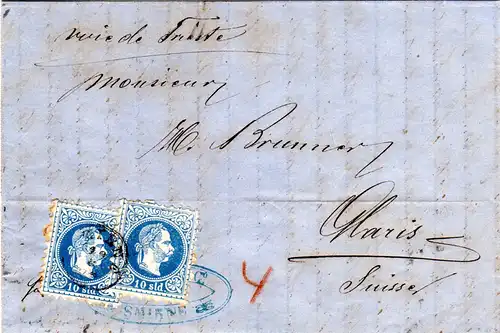 voie de Trieste
Monsieur
H. Brunner
Glaris
Suisse
10 sld 10 sld
SMIRNE
4